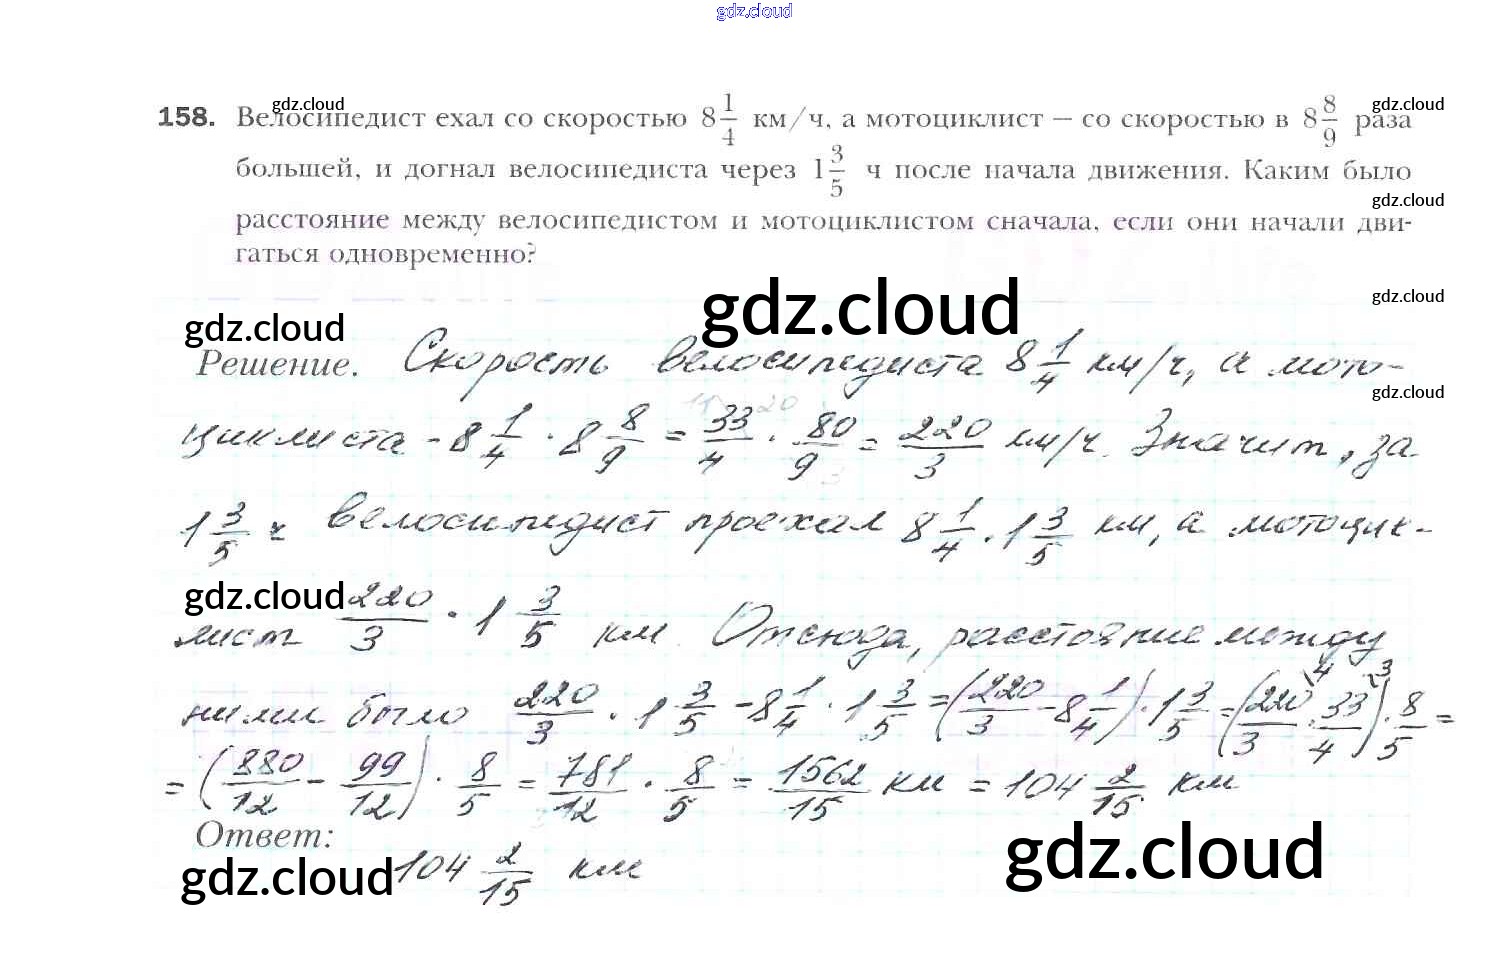 gdz.cloud
158. Велосипедист ехал со скоростью 8 1/4 км/ч, а мотоциклист – со скоростью в 8 8/9 раза
большей, и догнал велосипедиста через 1 3/5 ч после начала движения. Каким было
расстояние между велосипедистом и мотоциклистом сначала, если они начали дви-
гаться одновременно?
gdz.cloud
gdz.cloud
gdz.cloud
gdz.cloud
gdz.cloud
gdz.cloud
gdz.cloud
Решение. Скорость велосипедиста 8 1/4 км/ч, а мото-
циклиста - 8 1/4 · 8 8/9 = 33/4 · 80/9 = 220/3 км/ч. Значит, за
1 3/5 ч велосипедист проехал 8 1/4 · 1 3/5 км, а мотоцик-
gdz.cloud
лист 220/3 · 1 3/5 км. Отсюда, расстояние между
ними было 220/3 · 1 3/5 - 8 1/4 · 1 3/5 = (220/3 - 8 1/4) · 1 3/5 = (220/3 \4 - 33/4 \3) · 8/5 =
= (880/12 - 99/12) · 8/5 = 781/12 · 8/5 = 1562/15 км = 104 2/15 км
Ответ:
104 2/15 км
gdz.cloud
gdz.cloud